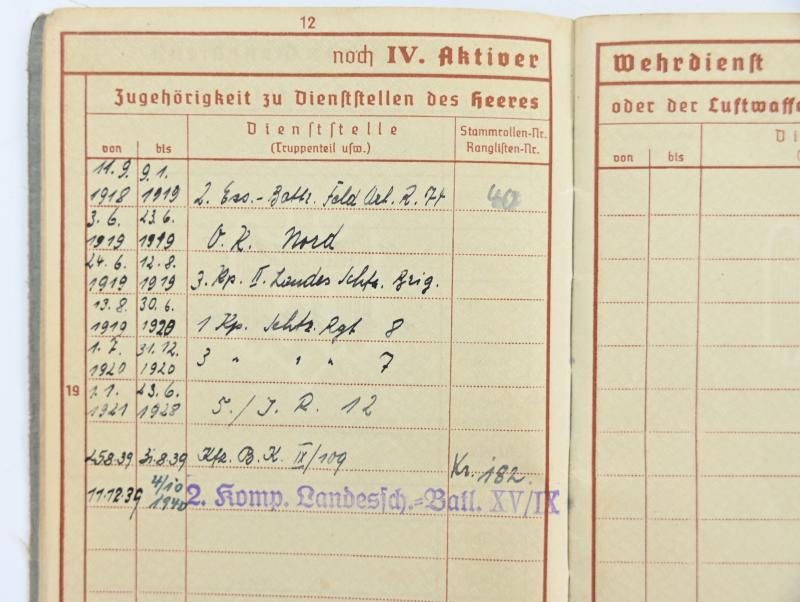 12
noch IV. Aktiver
Wehrdienst
Zugehörigkeit zu Dienststellen des Heeres
oder der Luftwaffe
von bis
Dienststelle
(Truppenteil usw.)
Stammrollen-Nr.
Ranglisten-Nr.
von bis
11.9. 9.1.
1918 1919 2. Ers.-Battr. Feld Art. R. 74 40
3.6. 23.6.
1919 1919 O. K. Nord
24.6. 12.8.
1919 1919 3. Kp. II. Landes Schtz. Brig.
13.8. 30.6.
1919 1920 1 Kp. Schtz. Rgt 8
1.7. 31.12.
1920 1920 3 " " " 7
19
1.1. 23.6.
1921 1928 5./ J. R. 12
25.8.39 31.8.39 Kfz. B. K. IX/109 Kr. 182.
11.12.39 4/10 1940 2. Komp. Landessch.=Batl. XV/IX